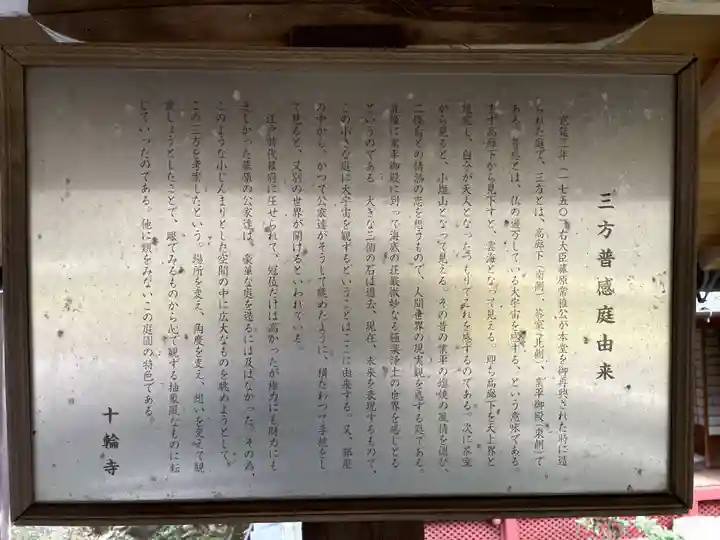 三方普感庭由来
寛延三年(一七五〇)右大臣藤原常雅公が本堂を御再興された時に造
られた庭で、三方とは、高廊下(南側)、茶室(北側)、業平御殿(東側)で
ある。普感とは、仏の遍万している大宇宙を感する、という意味である。
まず高廊下から見下すと、雲海となって見える。即ち高廊下を天上界と
想定し、自分が天人となったつもりでこれを感するのである。次に茶室
から見ると、小塩山となって見える。その昔の業平の塩焼の風情を偲び、
二條后との情熱の恋を想うもので、人間世界の現実観を感する庭である。
最後に業平御殿に到って海底の荘厳微妙なる極楽浄土の世界を感じとる
というのである。大きな三個の石は過去、現在、未来を表現するもので、
この小さな庭に大宇宙を観するということはここに由来する。又、御座
の中から、かつて公家達がそうして眺めたように、横たわって手枕をし
て見ると、又別の世界が開けるといわれている。
江戸時代幕府に圧せられて、冠位だけは高かったが権力にも財力にも
乏しかった藤原の公家達は、豪華な庭を造るには及ばなかった。その為、
このような小じんまりとした空間の中に広大なものを眺めようとして、
この三方を考案したという。場所を変え、角度を変え、想いを変えて観
賞しようとしたことで、眼でみるものから心で観する抽象風なものに転
じていったのである。他に類をみないこの庭園の特色である。
十輪寺